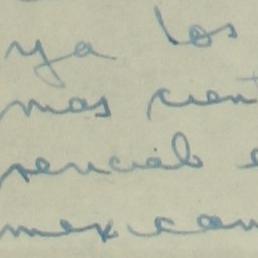 ya los
mas cient
sencial e
mexican